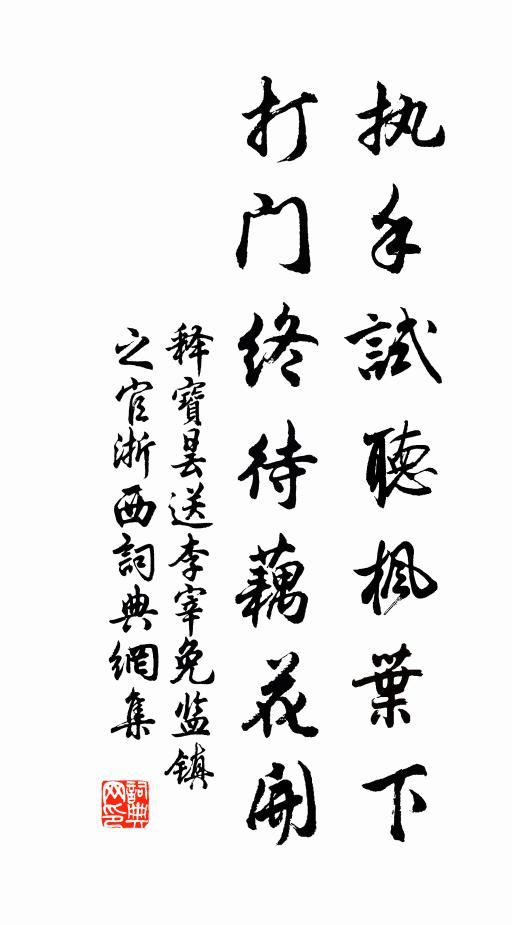 执手試聽楓葉下
打门终待藕花開
释寶曇送李宰免监镇
之官浙西詞典網集
詞典
网印